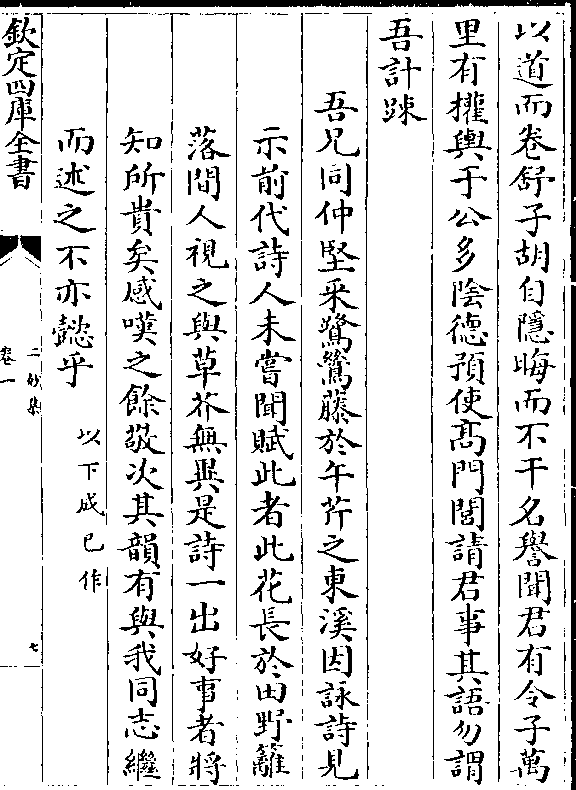 以道而卷舒子胡自隱晦而不干名譽聞君有令子萬
里有權輿于公多陰德預使髙門閭請君事其語勿謂
吾計踈
吾兄同仲堅采鷺鷥藤於午芹之東溪因詠詩見
示前代詩人未嘗聞賦此者此花長於田野籬
落間人視之與草芥無異是詩一出好事者將
知所貴矣感嘆之餘敬次其韻有與我同志繼
而述之不亦懿乎
以下成己作
欽定四庫全書
二妙集
卷一
七